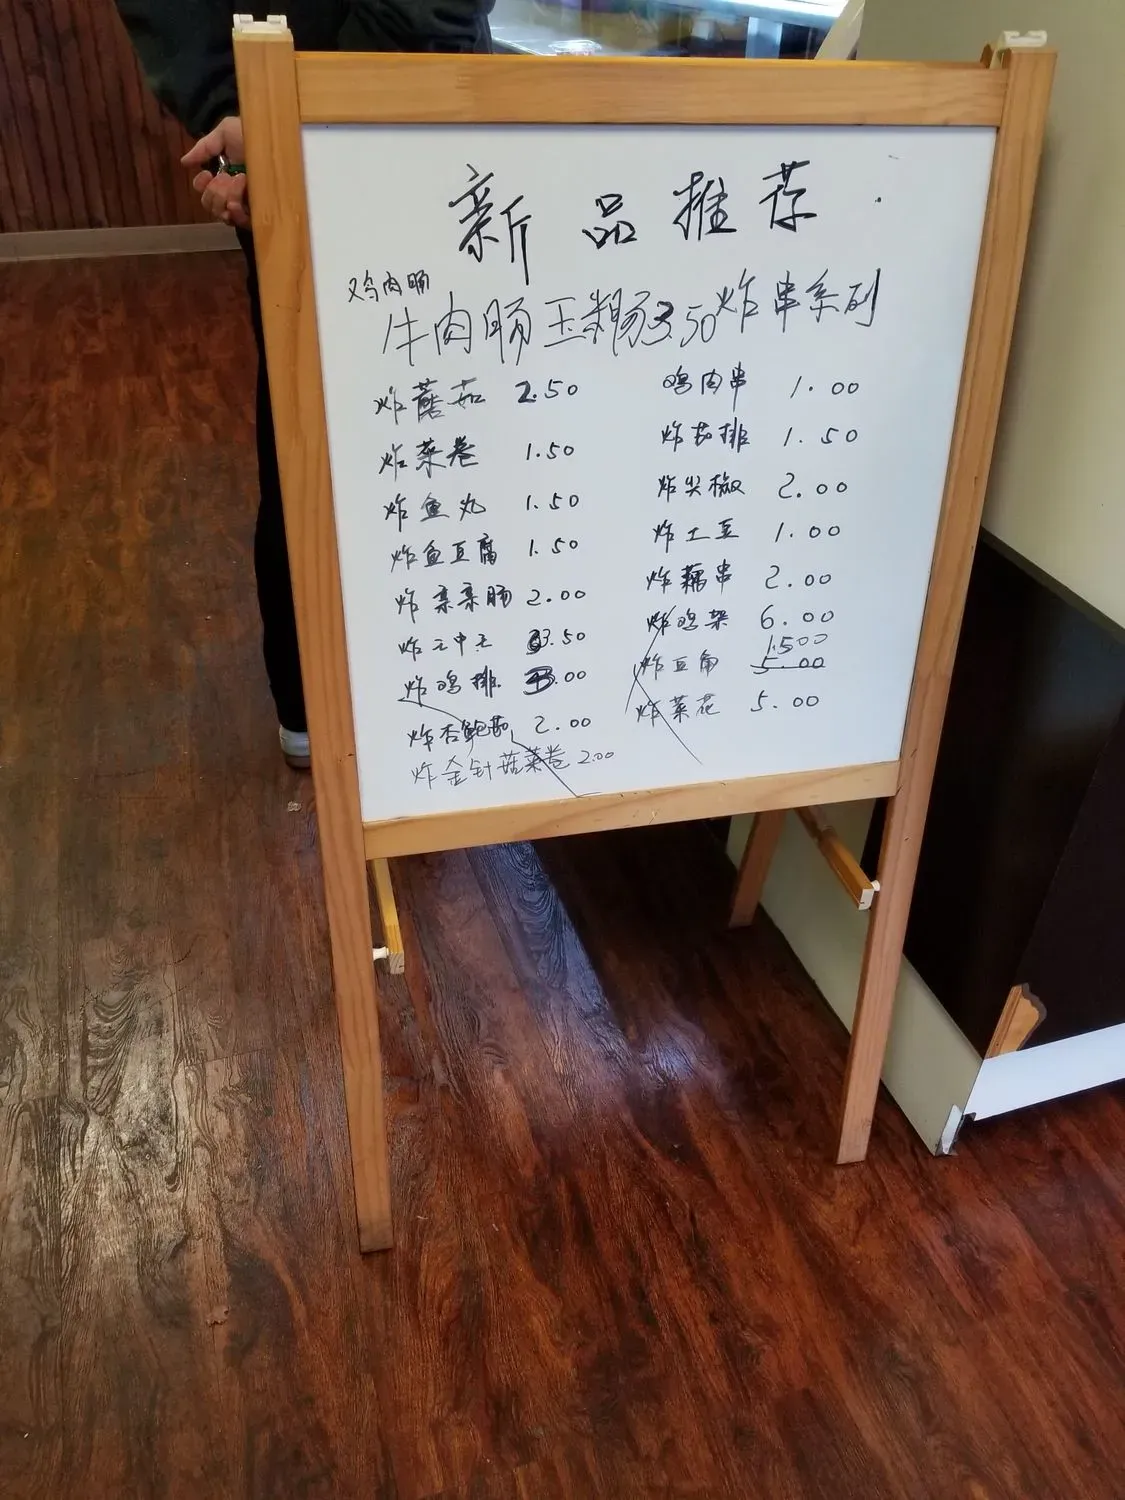 新品推荐.
鸡肉肠
牛肉肠玉米肠3.50炸串系列
炸蘑茹 2.50
炸菜卷 1.50
炸鱼丸 1.50
炸鱼豆腐 1.50
炸亲亲肠 2.00
炸王中王 3.50
炸鸡排 3.00
炸杏鲍茹 2.00
炸金针菇菜卷 2.00
鸡肉串 1.00
炸茄排 1.50
炸尖椒 2.00
炸土豆 1.00
炸藕串 2.00
炸鸡架 6.00
1.500
炸豆角 5.00
炸菜花 5.00